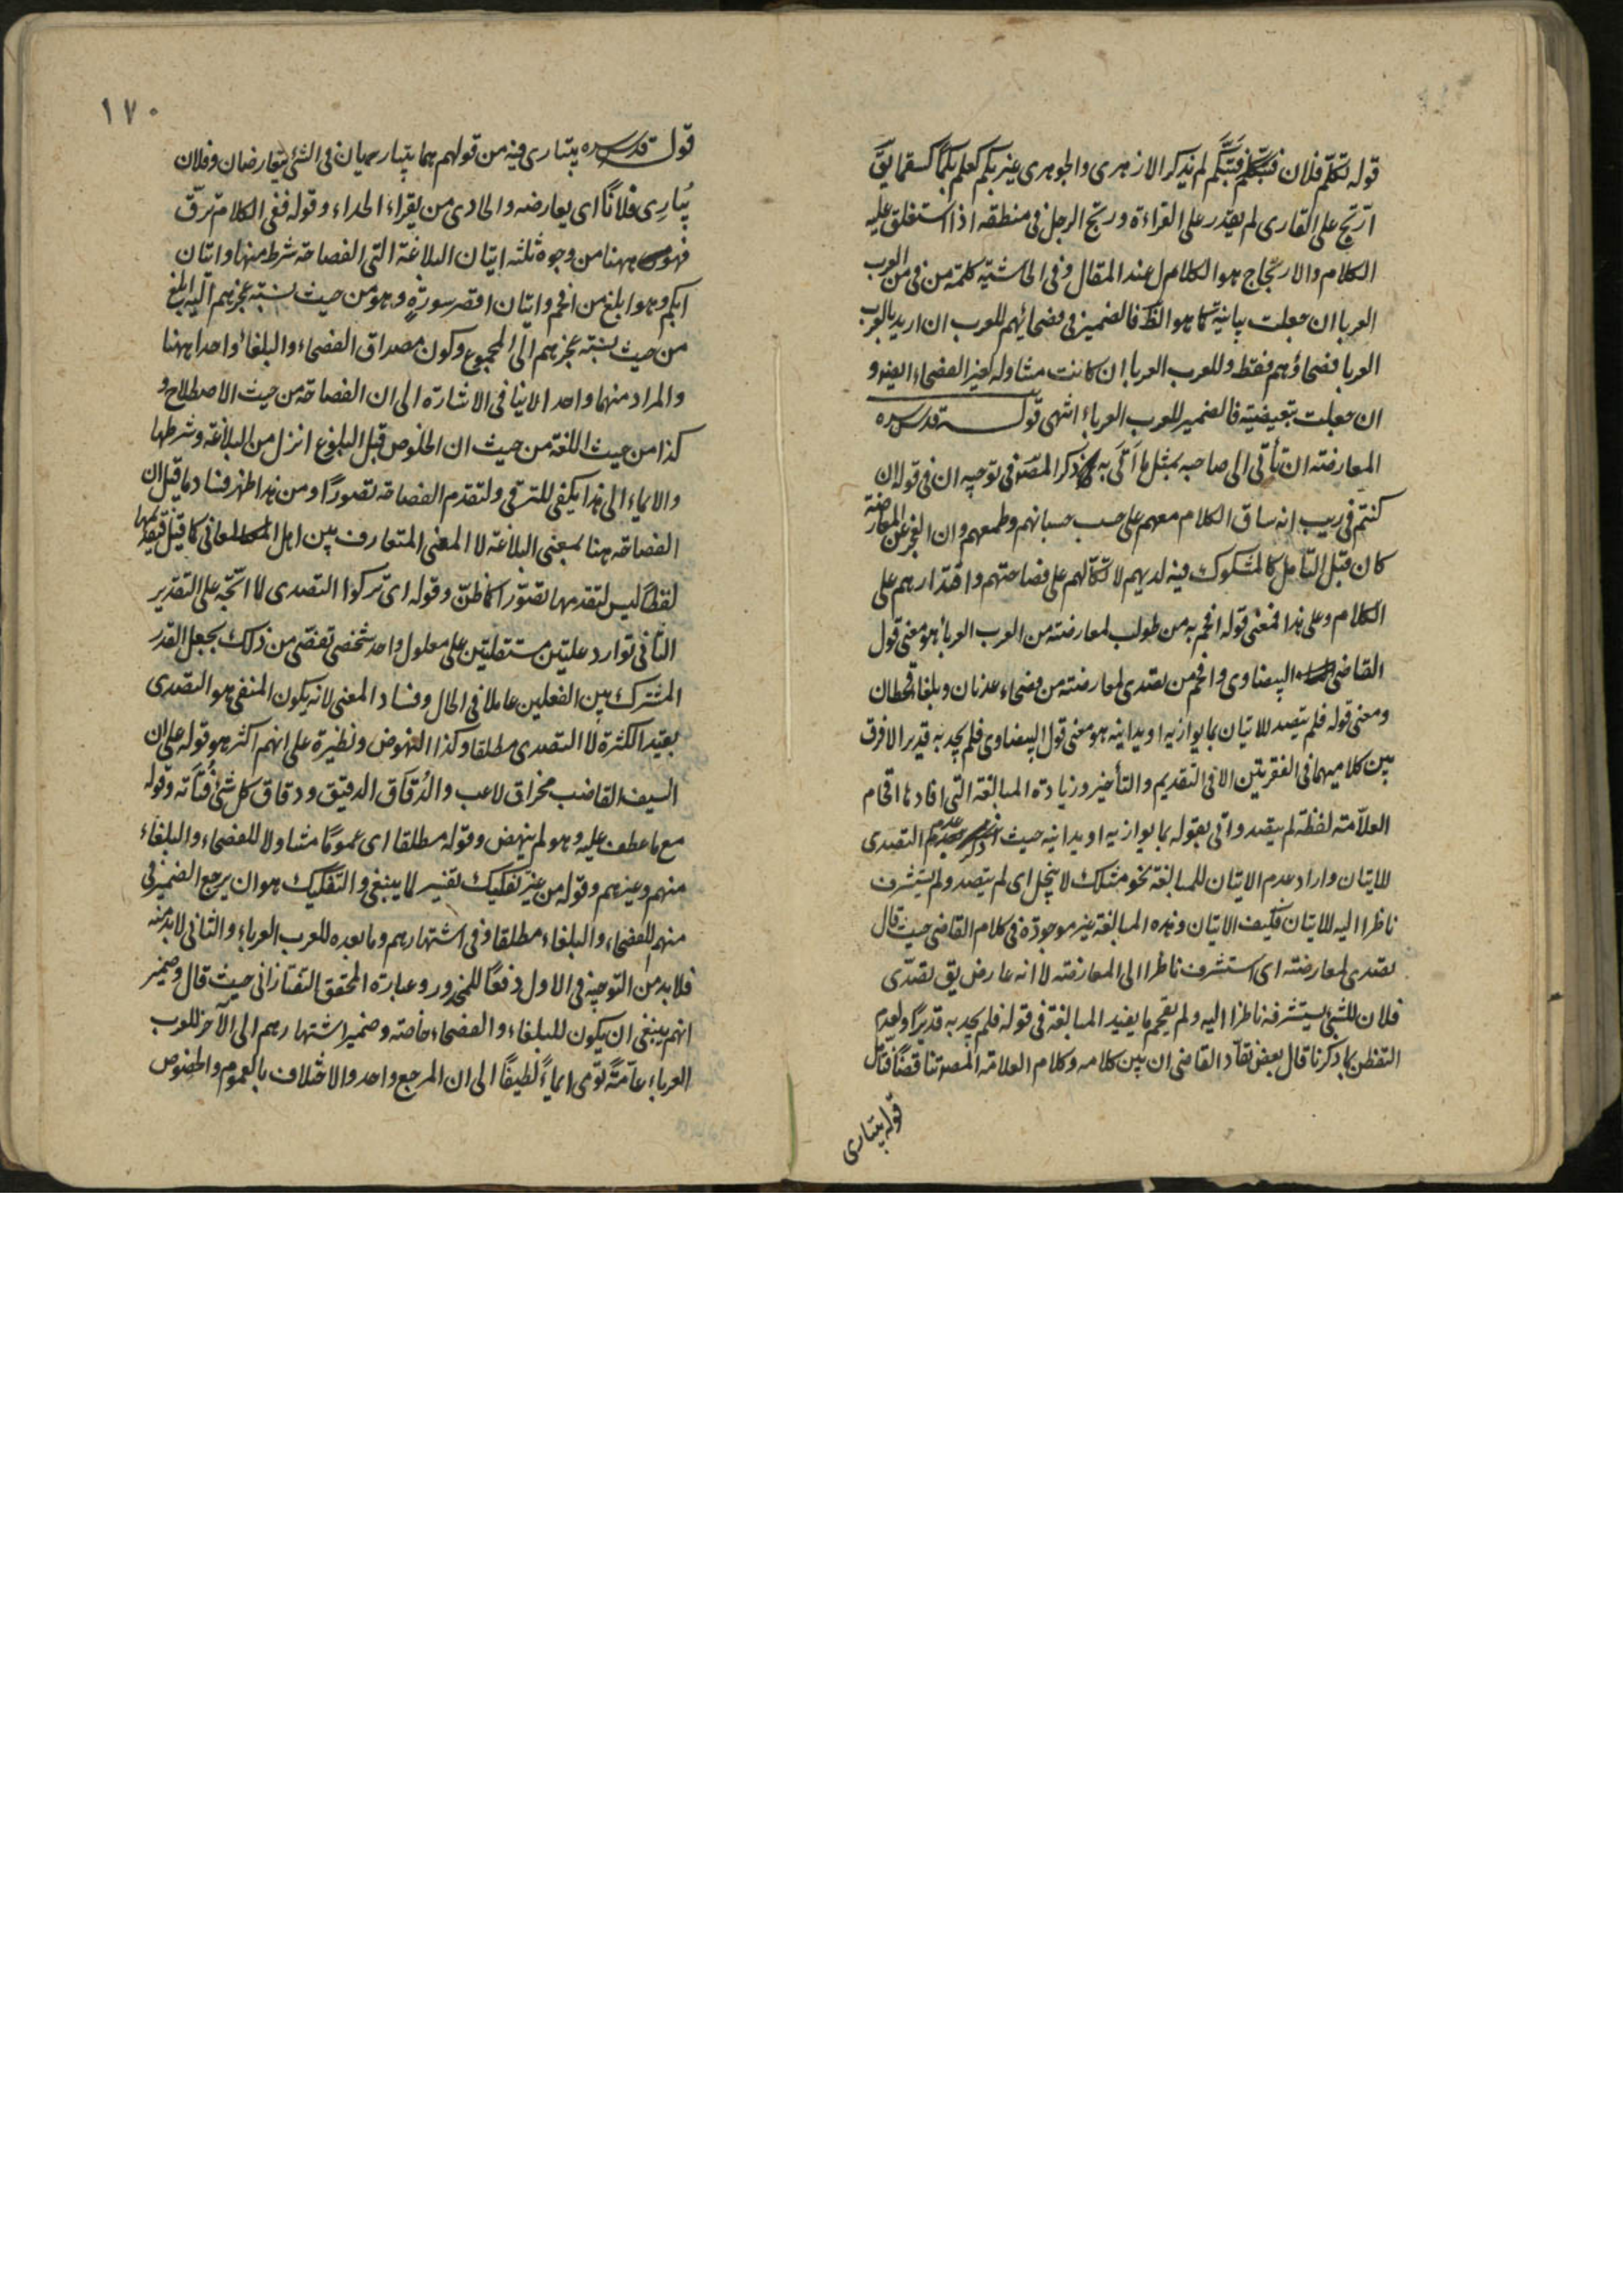 قوله تكلم فلان فتبكم لم يذكر الازهرى والجوهرى غير بكم كعلم بكما كسقما يق
ارتج على القارى لم يقدر على القراءة ورتج الرجل فى منطقه اذا استغلق عليه
الكلام والارتجاج هو الكلام عند المقال وفى الحاشية كلمة من فى من العرب
العربا ان جعلت بيانية كما هو الظ فالضمير فى فصحائهم للعرب ان اريد بالعرب
العربا فصحاؤهم فقط وللعرب العربا ان كانت متناوله لغير الفصحاء ايضا و
ان جعلت تبعيضية فالضمير للعرب العرباء انتهى قوله قدس سره
المعارضة ان تأتى الى صاحبه بمثل ما اتى به ذكر المص فى توجيه ان فى قوله ان
كنتم فى ريب انه ساق الكلام معهم على حسب حسبانهم وطمعهم وان العجز عن المعارضة
كان قبل التأمل كالمشكوك فيه لديهم لاتكالهم على فصاحتهم واقتدارهم على
الكلام وعلى هذا فمعنى قوله افحم به من طولب لمعارضته من العرب العربا هو معنى قول
القاضى البيضاوى وافحم من تصدى لمعارضته من فصحاء عدنان وبلغا قحطان
ومعنى قوله فلم يتصد للاتيان بما يوازيه او يدانيه هو معنى قول البيضاوى فلم يجد به قديرا لافرق
بين كلاميهما فى الفقرتين الا فى التقديم والتأخير وزيادة المبالغة التى افادها اقحام
العلامة لفظة لم يتصد واتى بقوله بما يوازيه او يدانيه حيث ذكر عدم التصدى
للاتيان واراد عدم الاتيان للمبالغة نحو مثلك لا يبخل اى لم يتصد ولم يستشرف
ناظرا اليه للاتيان فكيف الاتيان وهذه المبالغة غير موجودة فى كلام القاضى حيث قال
تصدى لمعارضته اى استشرف ناظرا الى المعارضة لا انه عارض يق تصدى
فلان للشئ يستشرفه ناظرا اليه ولم يقحم ما يفيد المبالغة فى قوله فلم يجد به قديرا ولعدم
التفطن بما ذكرنا قال بعض نقاد القاضى ان بين كلامه وكلام العلامة المص تناقضا فتأمل
قوله يتبارى
١٧٠
قوله قدس سره يتبارى فيه من قولهم هما يتباريان فى الشئ يتعارضان وفلان
يبارى فلانا اى يعارضه والحادى من يقراء الحداء وقوله ففى الكلام ترق
فهو ههنا من وجوه ثلثه اتيان البلاغة التى الفصاحة شرط منها واتيان
ابكم وهو ابلغ من افحم واتيان اقصر سورة وهو من حيث نسبة عجزهم اليه ابلغ
من حيث نسبة عجزهم الى المجموع وكون مصداق الفصحاء والبلغاء واحدا ههنا
والمراد منهما واحد لا ينافى الاشارة الى ان الفصاحة من حيث الاصطلاح و
كذا من حيث اللغة من حيث ان الخلوص قبل البلوغ انزل من البلاغة وشرطها
والايماء الى هذا يكفى للترقى ولتقدم الفصاحة تصورا ومن هذا ظهر فساد ما قيل ان
الفصاحة هنا بمعنى البلاغة لا المعنى المتعارف بين اهل المعانى كما قيل فتقديمها
لفظا ليس لتقدمها تصورا كما ظن وقوله اى تركوا التصدى لما اتجه على التقدير
الثانى توارد علتين مستقلتين على معلول واحد شخصى تفصى من ذلك بجعل القدر
المشترك بين الفعلين عاملا فى الحال وفساد المعنى لانه يكون المنفى هو التصدى
بقيد الكثرة لا التصدى مطلقا وكذا النهوض ونظيرة على انهم اكثر هو قوله على ان
السيف القاضب مخراق لاعب والدقاق الدقيق ودقاق كل شئ فتاته وقوله
مع ما عطف عليه وهو لم ينهض وقوله مطلقا اى عموما متناولا للفصحاء والبلغاء
منهم وغيرهم وقوله من غير تفكيك تفسير لا ينبغى والتفكيك هو ان يرجع الضمير فى
منهم للفصحاء والبلغاء مطلقا وفى اشتهارهم وما بعده للعرب العرباء والثانى لابد منه
فلا بد من التوجيه فى الاول دفعا للمحذور وعبارة المحقق التفتازانى حيث قال وضمير
انهم ينبغى ان يكون للبلغاء والفصحاء خاصة وضمير اشتهارهم الى الآخر للعرب
العرباء عامة تومى ايماء لطيفا الى ان المرجع واحد والاختلاف بالعموم والخصوص